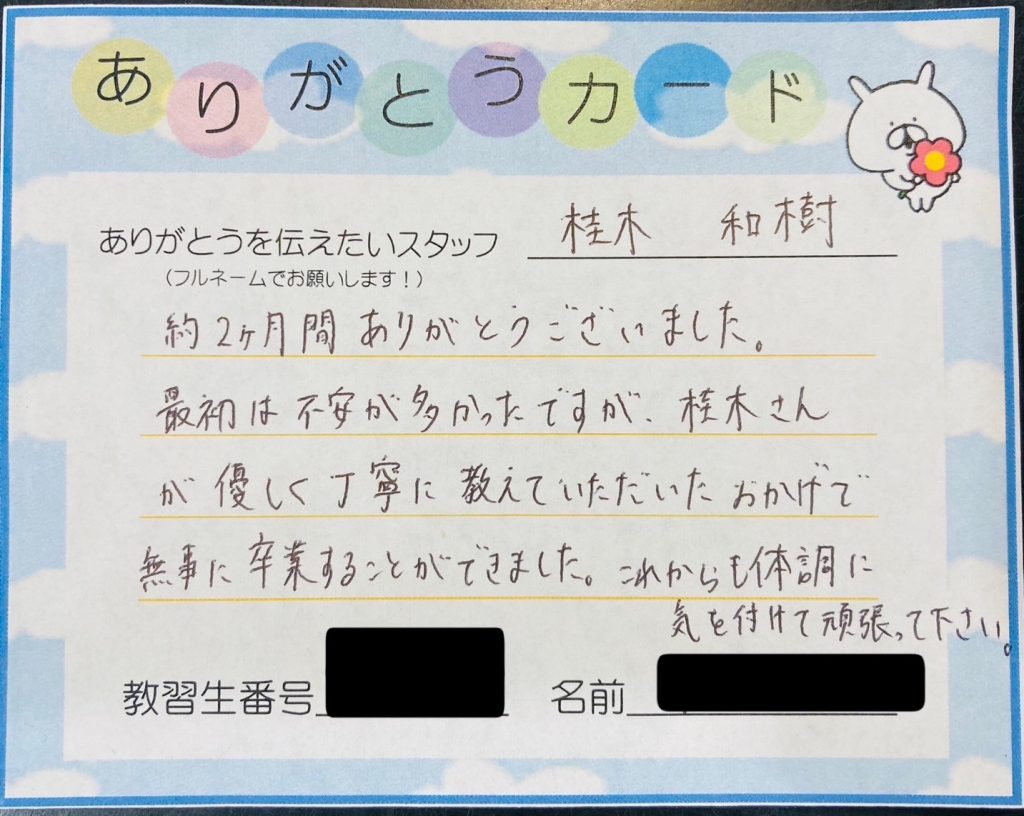 ありがとうカード
ありがとうを伝えたいスタッフ 桂木 和樹
（フルネームでお願いします！）
約2ヶ月間ありがとうございました。
最初は不安が多かったですが、桂木さん
が優しく丁寧に教えていただいたおかげで
無事に卒業することができました。これからも体調に
気を付けて頑張って下さい。
教習生番号
名前